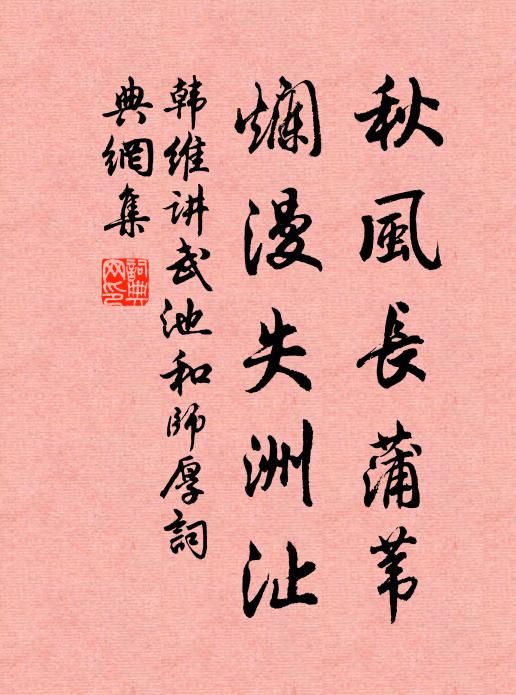 秋風長蒲苇
爛漫失洲沚
韩維讲武池和師厚詞
典網集
詞典网印